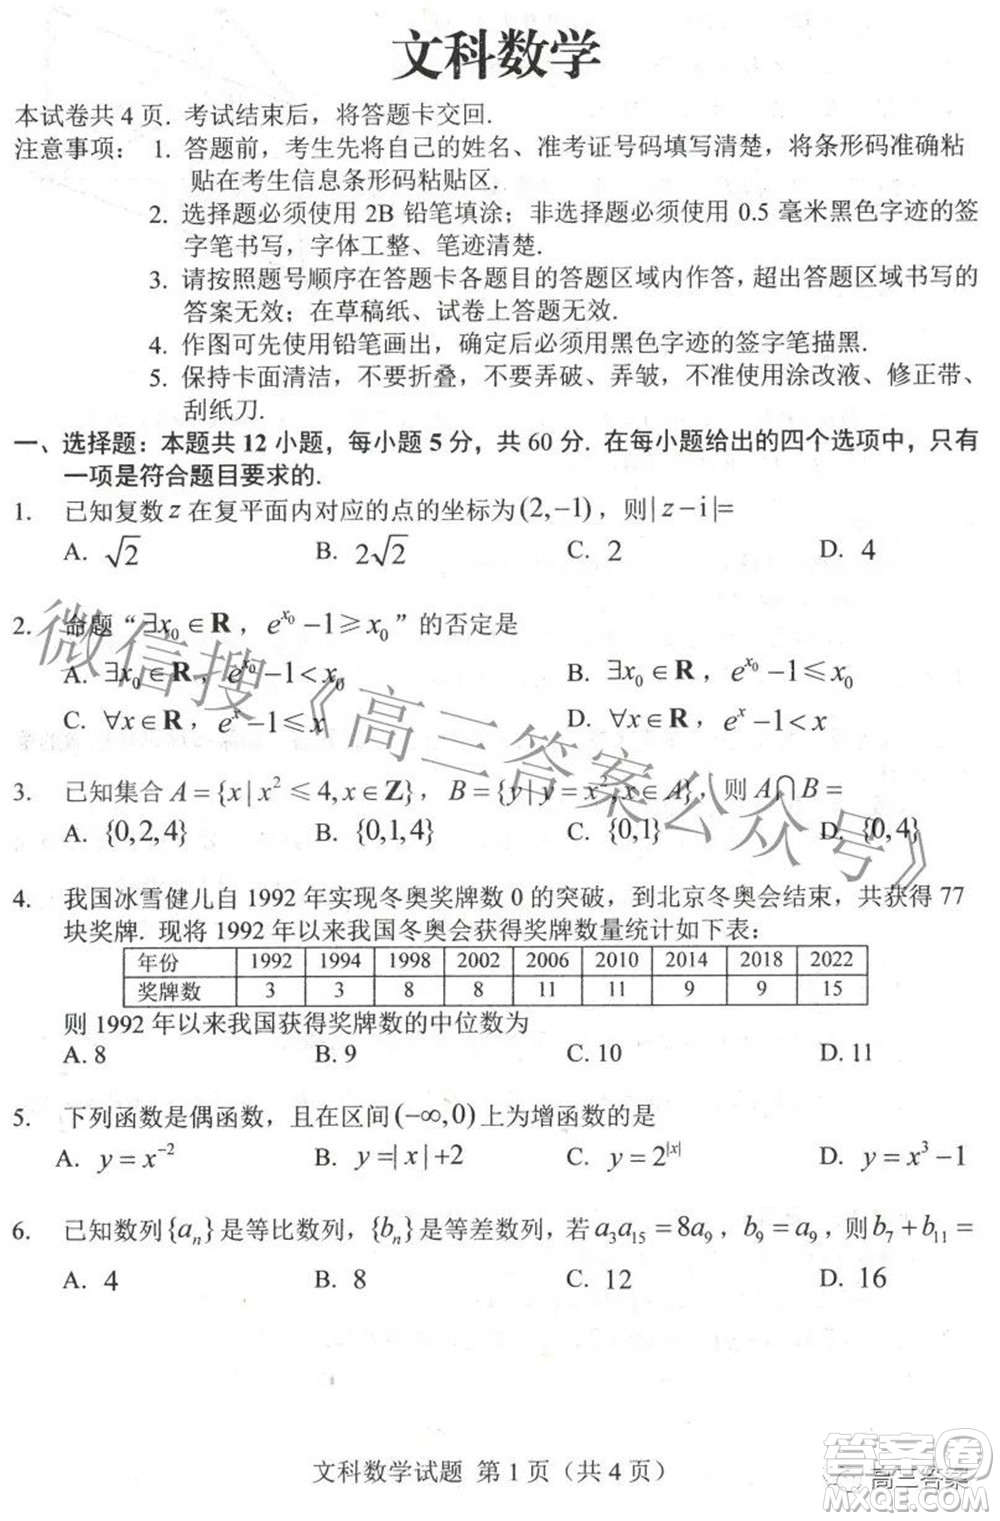 文科数学
本试卷共 4 页. 考试结束后，将答题卡交回.
注意事项： 1. 答题前，考生先将自己的姓名、准考证号码填写清楚，将条形码准确粘
贴在考生信息条形码粘贴区.
2. 选择题必须使用 2B 铅笔填涂；非选择题必须使用 0.5 毫米黑色字迹的签
字笔书写，字体工整、笔迹清楚.
3. 请按照题号顺序在答题卡各题目的答题区域内作答，超出答题区域书写的
答案无效；在草稿纸、试卷上答题无效.
4. 作图可先使用铅笔画出，确定后必须用黑色字迹的签字笔描黑.
5. 保持卡面清洁，不要折叠，不要弄破、弄皱，不准使用涂改液、修正带、
刮纸刀.
一、选择题：本题共 12 小题，每小题 5 分，共 60 分. 在每小题给出的四个选项中，只有
一项是符合题目要求的.
1. 已知复数 z 在复平面内对应的点的坐标为 (2,−1)，则 | z − i |=
A. √2 B. 2√2 C. 2 D. 4
2. 命题“∃x₀ ∈ R，e^{x₀} −1 ⩾ x₀”的否定是
A. ∃x₀ ∈ R，e^{x₀} −1 < x₀ B. ∃x₀ ∈ R，e^{x₀} −1 ⩽ x₀
C. ∀x ∈ R，e^x −1 ⩽ x D. ∀x ∈ R，e^x −1 < x
3. 已知集合 A = {x | x² ⩽ 4, x ∈ Z}，B = {y | y = x², x ∈ A}，则 A∩B =
A. {0,2,4} B. {0,1,4} C. {0,1} D. {0,4}
4. 我国冰雪健儿自 1992 年实现冬奥奖牌数 0 的突破，到北京冬奥会结束，共获得 77
块奖牌. 现将 1992 年以来我国冬奥会获得奖牌数量统计如下表：
年份 1992 1994 1998 2002 2006 2010 2014 2018 2022
奖牌数 3 3 8 8 11 11 9 9 15
则 1992 年以来我国获得奖牌数的中位数为
A. 8 B. 9 C. 10 D. 11
5. 下列函数是偶函数，且在区间 (−∞,0) 上为增函数的是
A. y = x⁻² B. y =| x | +2 C. y = 2^{|x|} D. y = x³ −1
6. 已知数列 {aₙ} 是等比数列，{bₙ} 是等差数列，若 a₃a₁₅ = 8a₉，b₉ = a₉，则 b₇ + b₁₁ =
A. 4 B. 8 C. 12 D. 16
文科数学试题 第 1 页（共 4 页）
微信搜《高三答案公众号》
答案圈
高三答案
MXQE.COM